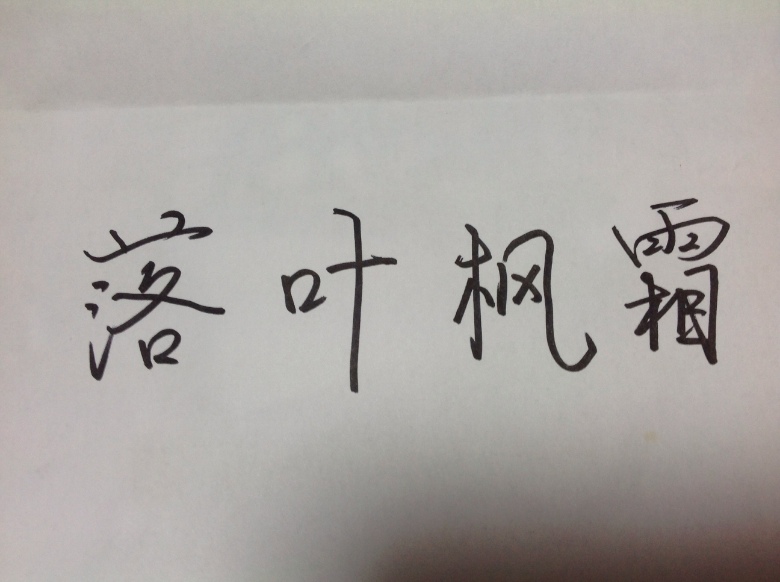 落叶枫霜